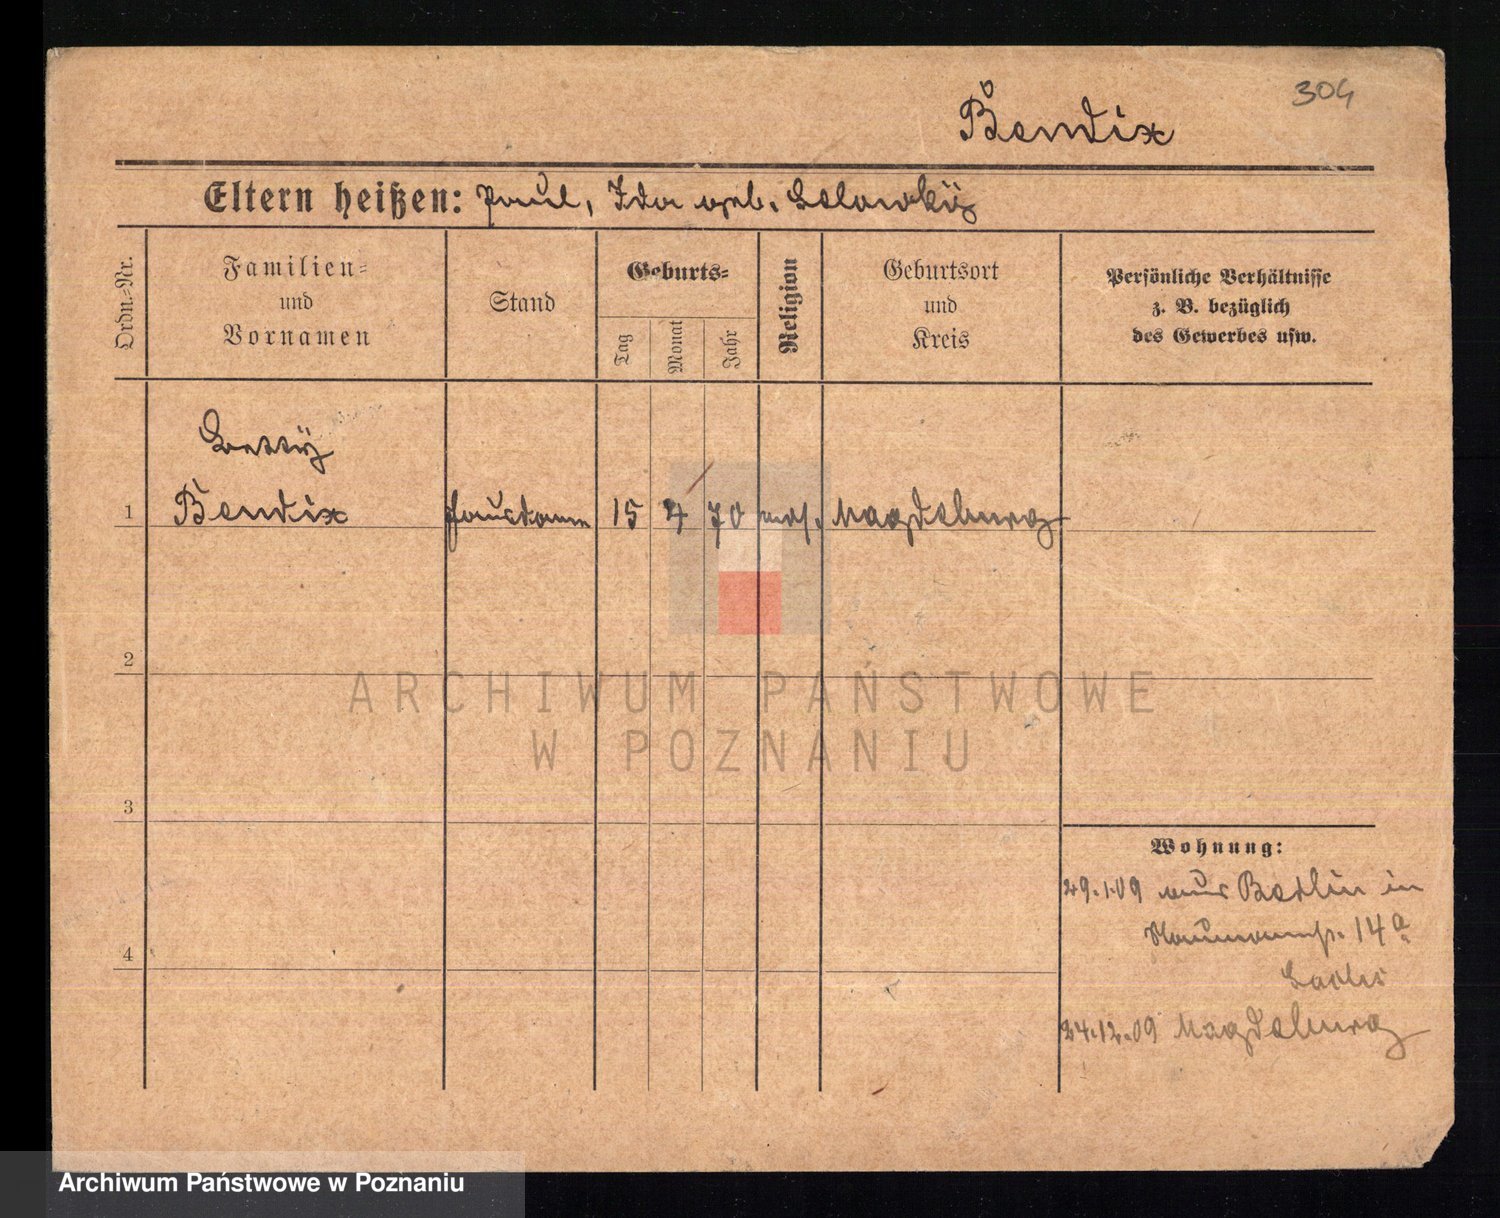 304
Bendix
Eltern heißen: Paul, Ida geb.
Ordn.=Nr.
Familien=
und
Vornamen
Stand
Geburts=
Tag
Monat
Jahr
Religion
Geburtsort
und
Kreis
Persönliche Verhältnisse
z. B. bezüglich
des Gewerbes usw.
Betty
1 Bendix Hausdame 15 4 70 mos. Magdeburg
2
3
4
Wohnung:
29.1.09 aus Berlin in
Naumannstr. 14a
24.12.09 Magdeburg
ARCHIWUM PAŃSTWOWE
W POZNANIU
Archiwum Państwowe w Poznaniu